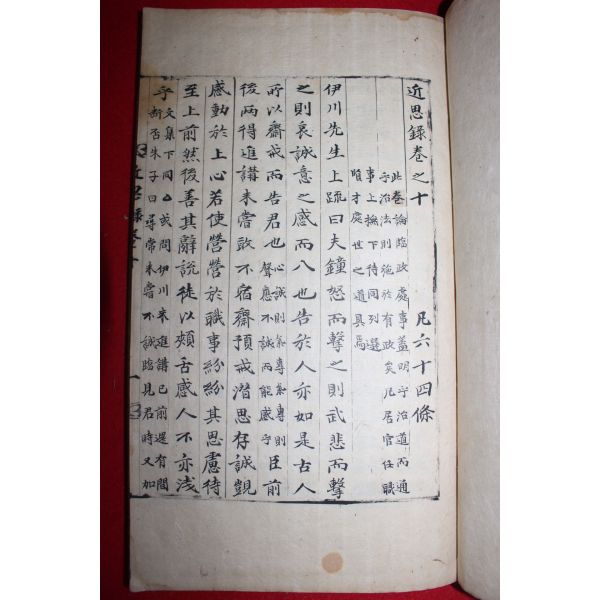 近思錄卷之十 凡六十四條
此卷論臨政處事蓋明乎治道而通
乎治法則施於有政矣凡居官任職
事上撫下待同列選
賢才處世之道具焉
伊川先生上疏曰夫鐘怒而擊之則武悲而擊
之則哀誠意之感而入也告於人亦如是古人
所以齋戒而告君也 心誠則氣專氣專則 聲應不誠而能感乎 臣前
後兩得進講未嘗敢不宿齋預戒潛思存誠覬
感動於上心若使營營於職事紛紛其思慮待
至上前然後善其辭說徒以頰舌感人不亦淺
乎 文集下同○或問伊川未進講已前還有間
斷否朱子曰尋常未嘗不誠臨見君時又加
近思錄卷十 一